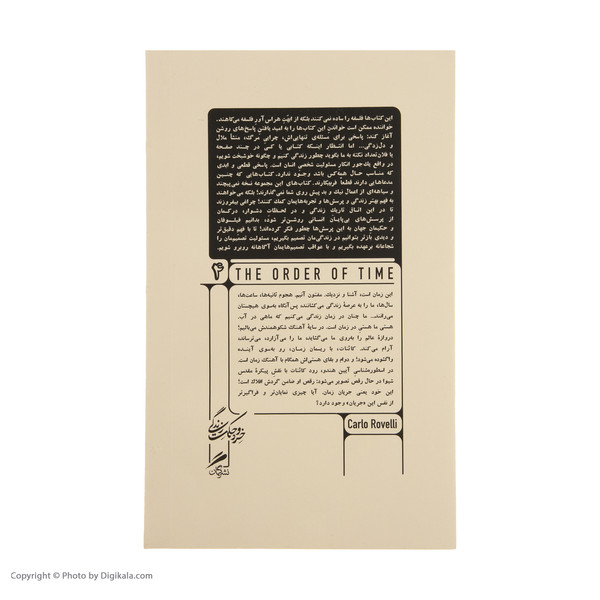 این کتاب‌ها فلسفه را ساده نمی‌کنند بلکه از ابهت هراس‌آور فلسفه می‌کاهند.
خواننده ممکن است خواندن این کتاب‌ها را به امید یافتن پاسخ‌های روشن
آغاز کند: پاسخی برای مسئله‌ی تنهایی‌اش، چرایی مرگ، منشأ ملال
و دل‌زدگی... اما انتظار اینکه کتابی یا کسی در چند صفحه
یا فلان‌تعداد نکته به ما بگوید چطور زندگی کنیم و چگونه خوشبخت شویم،
در واقع یک‌جور انکار مسئولیت شخصی انسان است. پاسخی قطعی و ابدی
که مناسب حال همه‌کس باشد وجود ندارد. کتاب‌هایی که چنین
مدعایی دارند قطعاً فریبکارند. کتاب‌های این مجموعه نسخه نمی‌پیچند
و سیاهه‌ای از اعمال نیک و بد پیش روی شما نمی‌گذارند؛ بلکه می‌خواهند
به فهم بهتر زندگی و تجربه‌هایمان کمک کنند؛ چراغی بیفروزند
تا در این اتاق تاریک زندگی و در لحظات دشوار، درکمان
از پرسش‌های بی‌پایان انسانی روشن‌تر شود، بدانیم فیلسوفان
و حکیمان جهان به این پرسش‌ها چطور فکر کرده‌اند؛ تا با فهم دقیق‌تر
و دیدی بازتر بتوانیم در زندگی‌مان تصمیم بگیریم، مسئولیت تصمیم‌مان را
شجاعانه برعهده بگیریم و با عواقب تصمیم‌هایمان آگاهانه روبرو شویم.
۴ THE ORDER OF TIME
این زمان است، آشنا و نزدیک. مفتون آنیم. هجوم ثانیه‌ها، ساعت‌ها،
سال‌ها، ما را به عرصهٔ زندگی می‌کشاند، پس‌آنگاه به‌سوی هیچستان
می‌راند... ما چنان در زمان زندگی می‌کنیم که ماهی در آب.
هستی ما هستی در زمان است. در سایهٔ آهنگ شکوهمندش می‌بالیم؛
دروازهٔ عالم را به‌روی ما می‌گشاید، ما را می‌آزارد، می‌ترساند،
آرام می‌کند. کائنات، با ریسمان زمان، رو به‌سوی آینده
واگشوده می‌شود؛ و دوام و بقای هستی‌اش همگام با آهنگ زمان است.
در اسطوره‌شناسی آیین هندو، رود کائنات با نقش پیکرهٔ مقدس
شیوا در حال رقص تصویر می‌شود: رقص او ضامن گردش افلاک است؛
این خود یعنی جریان زمان. آیا چیزی نمایان‌تر و فراگیرتر
از نفس این «جریان» وجود دارد؟
Carlo Rovelli
خرد و حکمت زندگی
نشر گمان
Copyright © Photo by Digikala.com